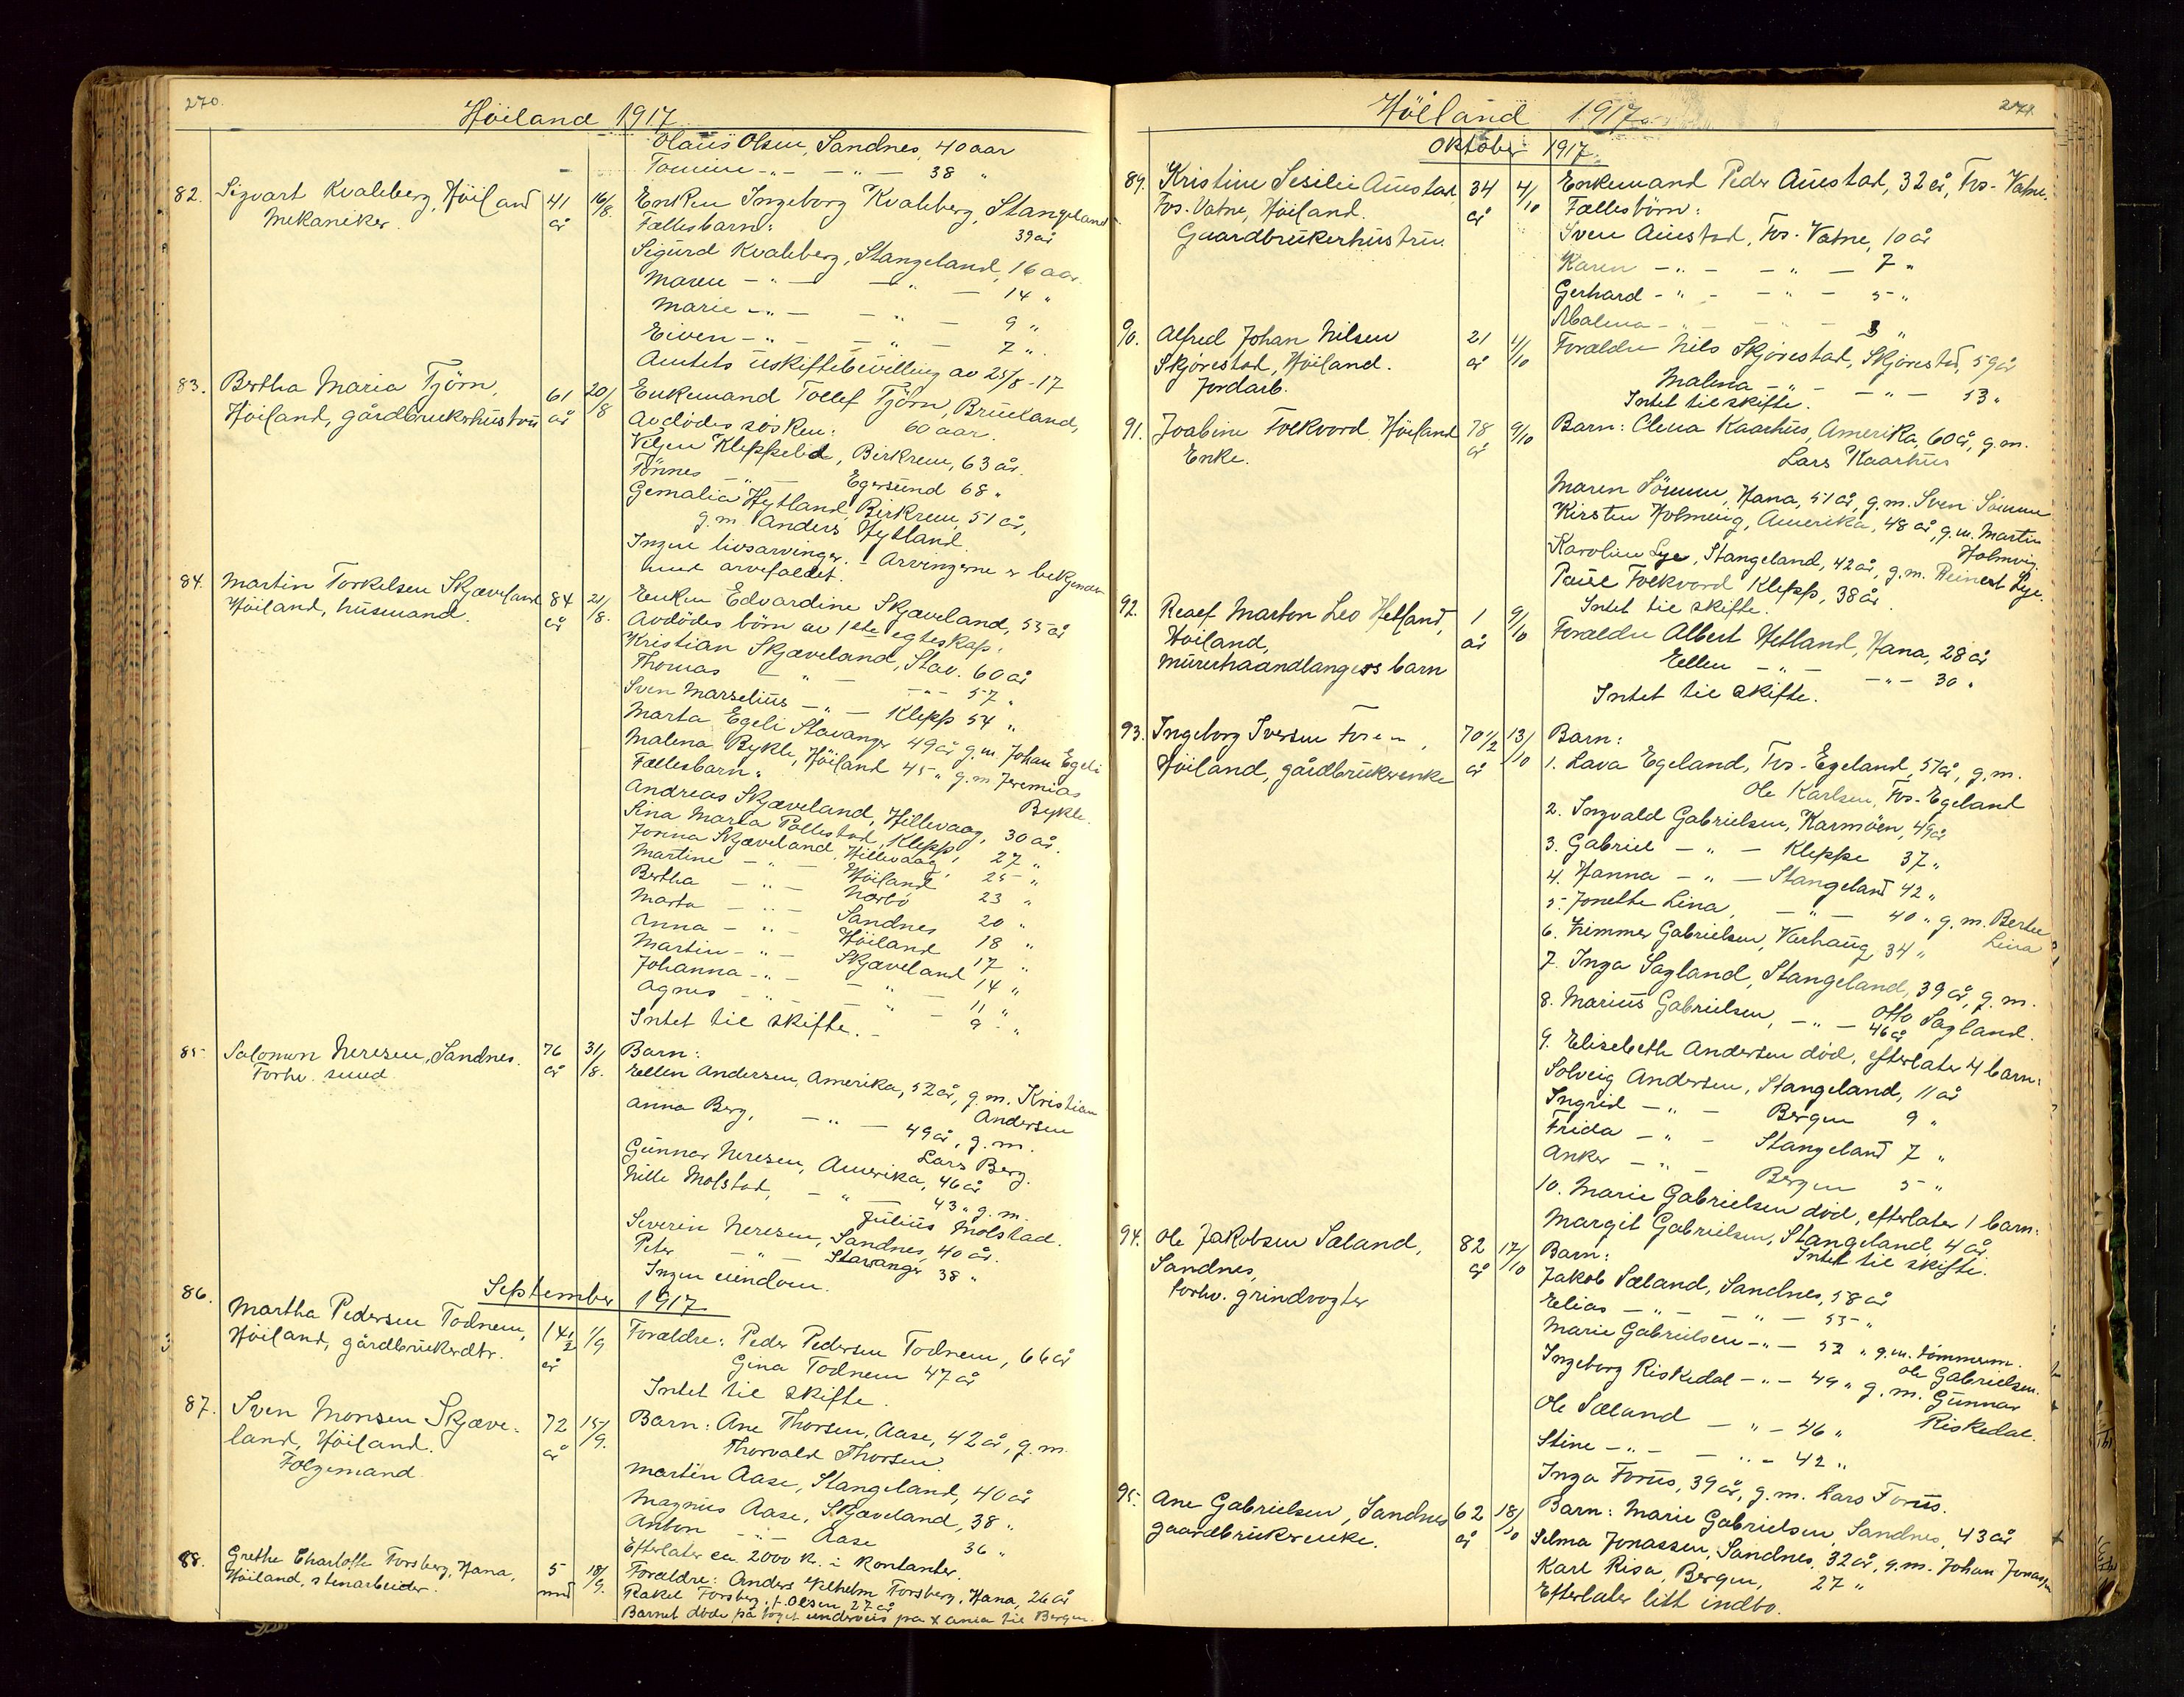 270.
Höiland 1917
Olaus Olsen, Sandnes, 40 aar
Tomine -„- - „ - 38 „
82. Sigvart Kvaleberg, Höiland 41 16/8. Enken Ingeborg Kvaleberg, Stangeland
Mekaniker. år Fællesbarn: 39 år
Sigurd Kvaleberg, Stangeland, 16 aar.
Maren - „ - - „ - 14 „
Marie - „ - - „ - 9 „
Eiven - „ - - „ - 7 „
Amtets uskiftebevilling av 25/8-17
83. Bertha Maria Tjörn, 61 20/8 Enkemand Tollef Tjörn, Brueland,
Höiland, gårdbrukerhustru år 60 aar.
Avdödes sösken:
Velger Kleppelid, Birkrem, 63 år.
Tönnes - „ - Egersund 68 „
Gemalia Hytland, Birkrem, 51 år,
g.m. Anders Hytland.
Ingen livsarvinger. - Arvingerne er bekjendt
med arvefaldet.
84. Martin Torkelsen Skjæveland 84 21/8. Enken Edvardine Skjæveland, 55 år
Höiland, husmand. år Avdödes börn av 1ste egteskap:
Kristian Skjæveland, Stav. 60 år
Thomas - „ - - „ - 57 „
Sven Marselius - „ - Klepp 54 „
Marta Egeli Stavanger 49 år g.m. Johan Egeli
Malena Bykle, Höiland 45 „ g.m. Jeremias
Bykle.
Fællesbarn:
Andreas Skjæveland, Hillevaag, 30 år.
Sina Marta Pollestad, Klepp, 27 „
Jonna Skjæveland, Hillevaag, 25 „
Martine - „ - Höiland 23 „
Bertha - „ - Nærbö 20 „
Marta - „ - Sandnes 18 „
Anna - „ - Höiland 17 „
Martin - „ - Skjæveland 14 „
Johanna - „ - - „ - 11 „
Agnes - „ - - „ - 9 „
Intet til skifte. -
85. Salomon Neresen, Sandnes. 76 31/8. Barn:
Forhv. smed år Ellen Andersen, Amerika, 52 år, g.m. Kristian
Andersen
Anna Berg, - „ - 49 år, g.m.
Lars Berg.
Gunnar Neresen, Amerika, 46 år
Nille Molstad, - „ - 43 „ g.m.
Julius Molstad.
Severin Neresen, Sandnes, 40 år.
Peter - „ - Stavanger 38 „
Ingen eiendom.
September 1917
86. Martha Pedersen Todnem, 14½ 1/9 Forældre: Peder Pedersen Todnem, 66 år
Höiland, gårdbrukerdtr. år Gina Todnem 47 år
Intet til skifte.
87. Sven Monsen Skjæve- 72 15/9. Barn: Ane Thorsen, Aase, 42 år, g.m.
land, Höiland. år Thorvald Thorsen.
Folgemand. Martin Aase, Stangeland, 40 år
Magnus Aase, Skjæveland, 38 „
Anton - „ - Aase 36 „
Efterlater ca. 2000 kr. i kontanter.
88. Grethe Charlotte Forsberg, Hana, 5 18/9. Forældre: Anders Vilhelm Forsberg, Hana, 26 år
Höiland, stenarbeider. mnd Rakel Forsberg, f. Olsen 27 år
Barnet döde på toget underveis fra Xania til Bergen.
271
Höiland 1917
Oktober 1917
89. Kristine Sesilie Auestad 34 4/10 Enkemand Peder Auestad, 32 år, Fos-Vatne.
Fos-Vatne, Höiland. år Fællesbörn:
Gaardbrukerhustru. Sven Auestad, Fos-Vatne, 10 år
Karen - „ - - „ - 7 „
Gerhard - „ - - „ - 5 „
Malena - „ - - „ - 3 „
90. Alfred Johan Nilsen 21 4/10 Forældre Nils Skjörestad, Skjörestad, 59 år
Skjörestad, Höiland. år Malena - „ - - „ - 53 „
Jordarb. Intet til skifte.
91. Joabine Folkvord Höiland 78 9/10 Barn: Elena Kaarhus, Amerika, 60 år, g.m.
Enke. år Lars Kaarhus
Maren Sömme, Hana, 51 år, g.m. Sven Sömme
Kirsten Holmvig, Amerika, 48 år, g.m. Martin
Holmvig.
Karoline Lye, Stangeland, 42 år, g.m. Reinert Lye.
Paul Folkvord Klepp, 38 år.
Intet til skifte.
92. Realf Marton Leo Hetland, 1 9/10 Forældre Albert Hetland, Hana, 28 år
Höiland, år Ellen - „ - - „ - 30 „
Murerhaandlangers barn Intet til skifte.
93. Ingeborg Iversen Foren, 70½ 13/10 Barn:
Höiland, gårdbrukerenke år 1. Lava Egeland, Fos-Egeland, 51 år, g.m.
Ole Karlsen, Fos-Egeland
2. Ingvald Gabrielsen, Karmöen, 49 år
3. Gabriel - „ - Kleppe 37 „
4. Hanna - „ - Stangeland 42 „
5. Jonette Lina, - „ - 40 „ g.m. Bertel
Lina
6. Zimmer Gabrielsen, Varhaug, 34 „
7. Inga Sagland, Stangeland, 39 år, g.m.
Otto Sagland.
8. Marius Gabrielsen, - „ - 46 år
9. Elisebeth Andersen död, efterlater 4 barn:
Solveig Andersen, Stangeland, 11 år
Ingrid - „ - Bergen 9 „
Frida - „ - Stangeland 7 „
Anker - „ - Bergen 5 „
10. Marie Gabrielsen död, efterlater 1 barn:
Margit Gabrielsen, Stangeland, 4 år.
Intet til skifte.
94. Ole Jakobsen Sæland, 82 17/10 Barn:
Sandnes, år Jakob Sæland, Sandnes, 58 år
forhv. grindvogter Elias - „ - - „ - 55 „
Marie Gabrielsen - „ - 52 „ g.m. tömmerm.
Ole Gabrielsen.
Ingeborg Riskedal - „ - 49 „ g.m. Gunnar
Riskedal.
Ole Sæland - „ - 46 „
Stine - „ - - „ - 42 „
Inga Forus, 39 år, g.m. Lars Forus.
95. Ane Gabrielsen, Sandnes 62 18/10 Barn: Marie Gabrielsen, Sandnes, 43 år
gaardbrukerenke. år Selma Jonassen, Sandnes, 32 år, g.m. Johan Jonassen
Karl Risa, Bergen, 27 „
Efterlater litt indbo.